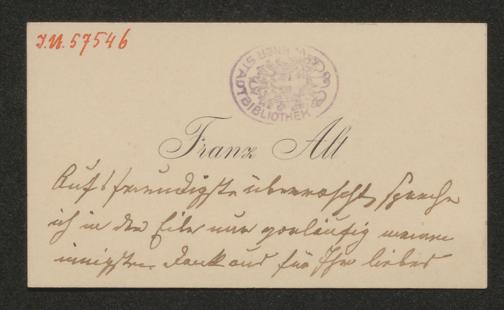 I.N. 57546
WIENER STADTBIBLIOTHEK
Franz Alt
Aufs freudigste überrascht, spreche
ich in der Eile nur vorläufig meinen
innigsten Dank aus für Ihr liebes